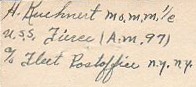 H. Kuehnert mo.m.m. 1/c
U.S.S. Fierce (A.M. 97)
c/o Fleet Postoffice n.y. n.y.